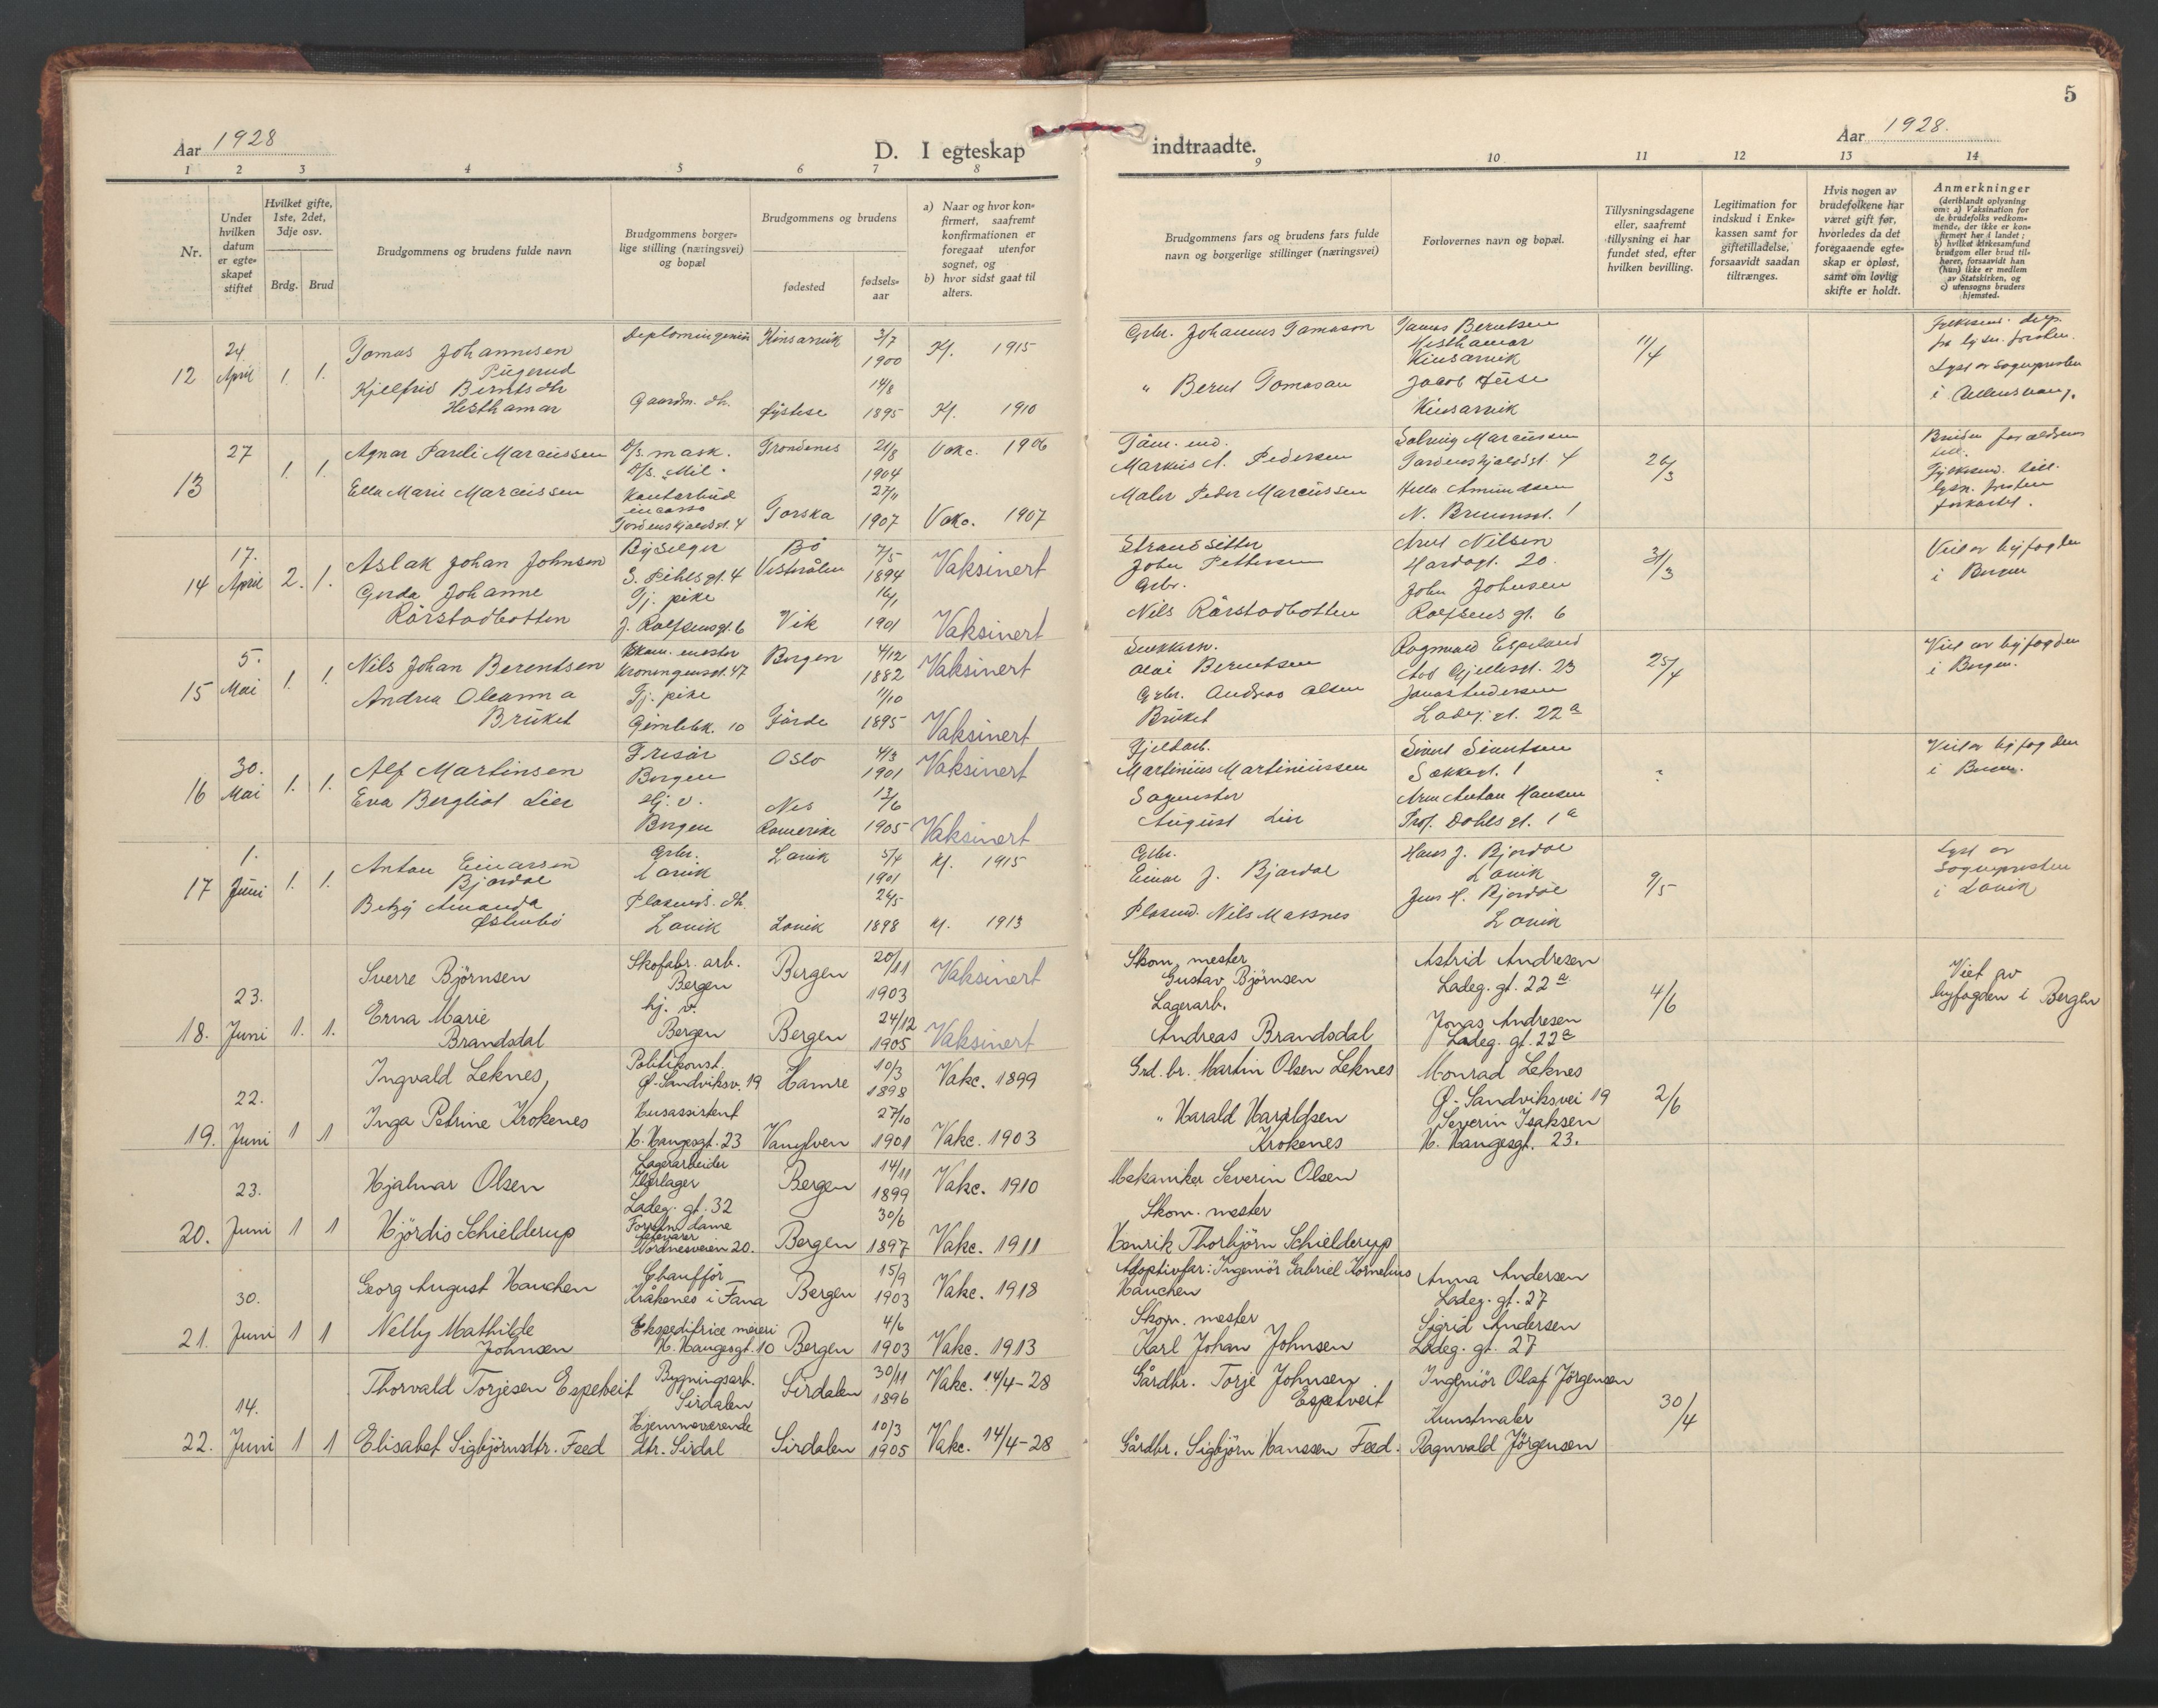 5
Aar 1928
D. I egteskap indtraadte.
Aar 1928.
1 2 3 4 5 6 7 8 9 10 11 12 13 14
Nr.
Under hvilken datum er egteskapet stiftet
Hvilket gifte, 1ste, 2det, 3dje osv.
Brdg. Brud
Brudgommens og brudens fulde navn
Brudgommens borgerlige stilling (næringsvei) og bopæl
Brudgommens og brudens
fødested
fødselsaar
a) Naar og hvor konfirmert, saafremt konfirmationen er foregaat utenfor sognet, og
b) hvor sidst gaat til alters.
Brudgommens fars og brudens fars fulde navn og borgerlige stillinger (næringsvei)
Forlovernes navn og bopæl.
Tillysningsdagene eller, saafremt tillysning ei har fundet sted, efter hvilken bevilling.
Legitimation for indskud i Enkekassen samt for giftetilladelse, forsaavidt saadan tiltrænges.
Hvis nogen av brudefolkene har været gift før, hvorledes da det foregaaende egteskap er opløst, samt om lovlig skifte er holdt.
Anmerkninger
(deriblandt oplysning om: a) Vaksination for de brudefolks vedkommende, der ikke er konfirmert her i landet; b) hvilket kirkesamfund brudgom eller brud tilhører, forsaavidt han (hun) ikke er medlem av Statskirken, og c) utensogns bruders hjemsted.
12 24 April 1. 1.
Tomas Johannesen
Kjelfrid Berntsdtr
Hesthamar
Diplomingeniör Kinsarvik 3/7 1900 Kf. 1915
Gaardm. dtr. Øystese 14/8 1895 Kf. 1910
Grbr. Johannes Tomason
" Bernt Tomasen
Tomas Berntsen
Hesthamar
Kinsarvik
Jacob
Kinsarvik
11/4
Lyst av sognepresten
i Ullensvang.
13 27 1. 1.
Agnar Pauli Marcussen
Ella Marie Marcussen
D/s. mask.
D/s. "Mil"
Kontorbud
incasso
Tordenskjoldsgt. 4
Trondenes 21/8 1904 Vakc. 1906
Torska 27/11 1907 Vakc. 1907
Markus A. Pedersen
Maler Peder Marcussen
Solveig Marcussen
Tordenskjoldsgt. 4
Amundsen
N. Bruunsgt. 1
26/3
14 17. April 2. 1.
Aslak Johan Johnsen
Gerda Johanne
Rörstadbotten
Byselger
S. Pihlsgt. 4
Tj. pike
J. Rolfsensgt. 6
Bö
Vesterålen 7/5 1894 Vaksinert
Vik 16/1 1901 Vaksinert
Strandsitter
John Pettersen
Grbr.
Nils Rörstadbotten
Arnt Nilsen
Hardagt. 20.
John Johnsen
Rolfsens gt. 6
31/3
Viet av byfogden
i Bergen
15 5. Mai 1. 1.
Nils Johan Berentsen
Andrea Oleanna
Bruket
Skom. mester
Kroningensgt. 47
Tj. pike
Gimlebk. 10
Bergen 4/12 1882 Vaksinert
Förde 11/10 1895 Vaksinert
Olai Berentsen
Grbr. Andreas Olsen
Bruket
Ragnvald Espeland
Aad Gjellesgt. 23
Jonas Andersen
Ladeg. gt. 22 a
25/4
Viet av byfogden
i Bergen.
16 30. Mai 1. 1.
Alf Martinsen
Eva Bergliot Lier
Frisör
Bergen
Hj. v.
Bergen
Oslo 4/3 1901 Vaksinert
Nes
Romerike 13/6 1905 Vaksinert
Martinius Martiniussen
Sagmester
August Lier
Sivert Sivertsen
Sekkegt. 1
Arne Anton Hansen
Prof. Dahls gt. 1 a
Viet av byfogden
i Bergen.
17 1. Juni 1. 1.
Anton Einarsen
Bjordal
Betzy Amanda
Østerbö
Grbr.
Lavik
Plasmds. dtr.
Lavik
Lavik 5/4 1901 Kf. 1915
Lavik 24/5 1898 Kf. 1913
Grbr.
Einar J. Bjordal
Plasmd. Nils Massnes
Hans J. Bjordal
Lavik
Jens H. Bjordal
Lavik
9/5
Lyst av
Sogneprosten
i Lavik
18. 23. Juni 1. 1.
Sverre Björnsen
Erna Marie
Brandsdal
Skofabr. arb.
Bergen
hj. v.
Bergen
Bergen 20/11 1903 Vaksinert
Bergen 24/12 1905 Vaksinert
Skom. mester
Gustav Björnsen
Lagerarb.
Andreas Brandsdal
Astrid Andresen
Ladeg. gt. 22 a
Jonas Andresen
Ladeg. gt. 22 a
4/6
Viet av
byfogden i Bergen
19. 22. Juni 1 1
Ingvald Leknes,
Inga Petrine Krokenes
Politikonst.
Ø. Sandviksv. 19
Husassistent
H. Haugesgt. 23
Hamre 10/3 1898 Vakc. 1899
Vanylven 27/10 1901 Vakc. 1903
Grd. br. Martin Olsen Leknes
" Harald Haraldsen
Krokenes
Monrad Leknes
Ø. Sandviksvei 19
Severin Isaksen
H. Haugesgt. 23.
2/6
20. 23. Juni 1 1
Hjalmar Olsen
Hjördis Schielderup
Lagerarbeider
Ladeg. gt. 32
Nordnesveien 20.
Bergen 14/11 1899 Vakc. 1910
Bergen 30/6 1897 Vakc. 1911
Mekaniker Severin Olsen
Skom. mester
Henrik Thorbjörn Schielderup
21. 30. Juni 1 1
Georg August Hauchen
Nelly Mathilde
Johnsen
Chaufför
Kråkenes i Fana
Ekspeditrice meieri
H. Haugesgt. 10
Bergen 15/9 1903 Vakc. 1918
Bergen 4/6 1903 Vakc. 1913
Adoptivfar: Ingeniör Gabriel Kornelius
Hauchen
Skom. mester
Karl Johan Johnsen
Anna Andersen
Ladeg. gt. 27
Sigrid Andersen
Ladeg. gt. 27
22. 14. Juni 1 1
Thorvald Torjesen Espetveit
Elisabet Sigbjörnsdtr. Feed
Bygningsarb.
Sirdalen
Hjemmeværende
dtr. Sirdal
Sirdalen 30/11 1896 Vakc. 14/4-28
Sirdalen 10/3 1905 Vakc. 14/4-28
Gårdbr. Torje Johnsen
Espetveit
Gårdbr. Sigbjörn Hanssen Feed.
Ingeniör Olaf Jörgensen
Kunstmaler
Ragnvald Jörgensen
30/4